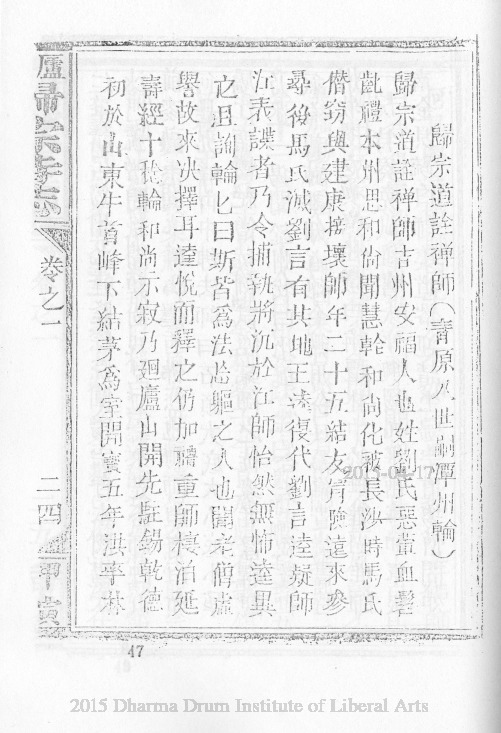 歸宗道詮禪師(青原八世嗣潭州輪)
歸宗道詮禪師吉州安福人也姓劉氏惡葷血髫
齔禮本州思和尚聞慧輪和尚化被長沙時馬氏
僭竊與建康接壤師年二十五結友冒險遠來參
尋後馬氏滅劉言有其地王逵復代劉言逵疑師
江表諜者乃令捕執將沉於江師怡然無怖逵異
之且詢輪匕曰斯皆為法忘軀之人也聞老僧虛
譽故來決擇耳逵悅而釋之仍加禮重師棲泊延
壽經十稔輪和尚示寂乃迴廬山開先駐錫乾德
初於山東牛首峰下結茅為室開寶五年洪帥林
廬歸宗寺志
卷之一
二四
甲寅
47
2015 Dharma Drum Institute of Liberal Arts